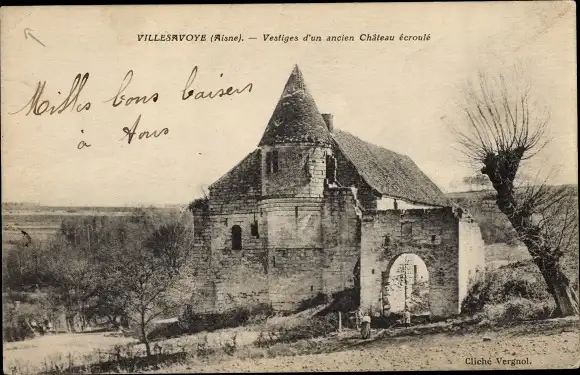 VILLESAVOYE (Aisne). — Vestiges d'un ancien Château écroulé
Mills bons baisers
à tous
Cliché Vergnol.